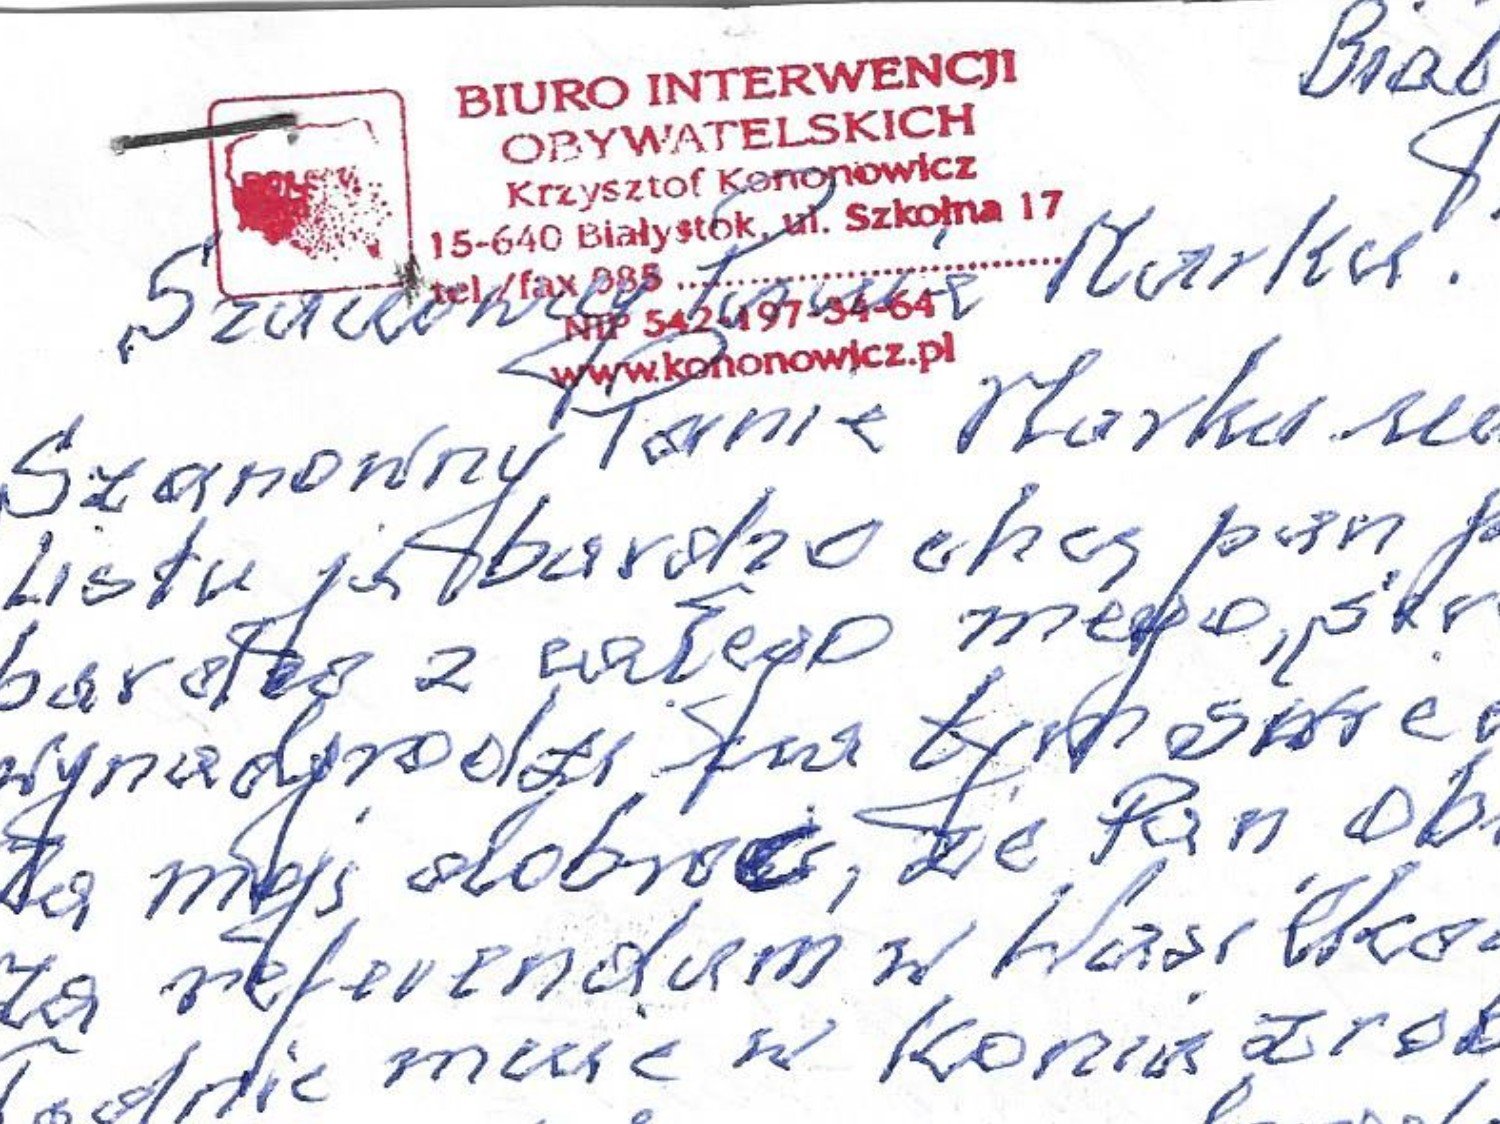 Biał
BIURO INTERWENCJI
OBYWATELSKICH
Krzysztof Kononowicz
15-640 Białystok, ul. Szkolna 17
tel./fax 085 ..............................
NIP 542-197-34-64
www.kononowicz.pl
POLSKA
Szanowny Panie Marku.
Szanowny Panie Marku
Listu ja bardzo chcą pan
bardzo z całego mego,
wynadgrodzi za tym
za moją dobroć, że Pan
za referendum w
musie w Koniu